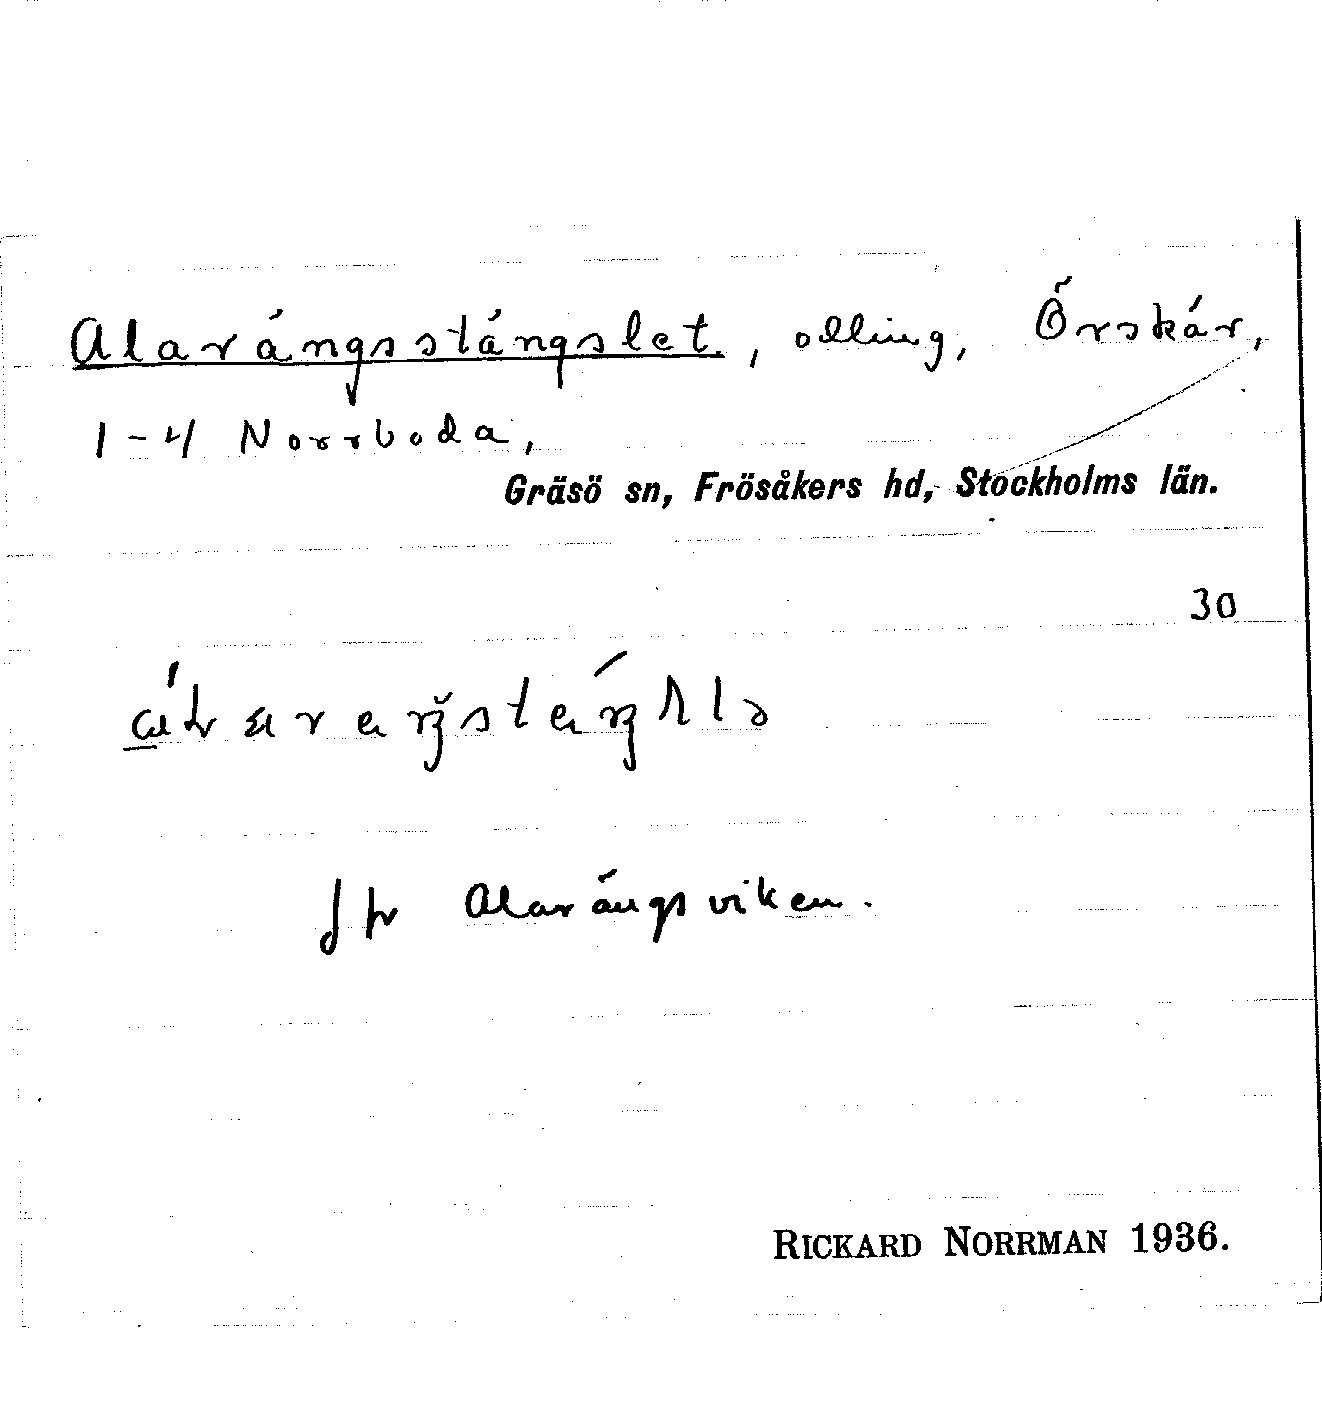 Alarängsstängslet, odling, Örskär,
1-4 Norrboda,
Gräsö sn, Frösåkers hd, Stockholms län.
30
Jfr Alarängsviken.
RICKARD NORRMAN 1936.